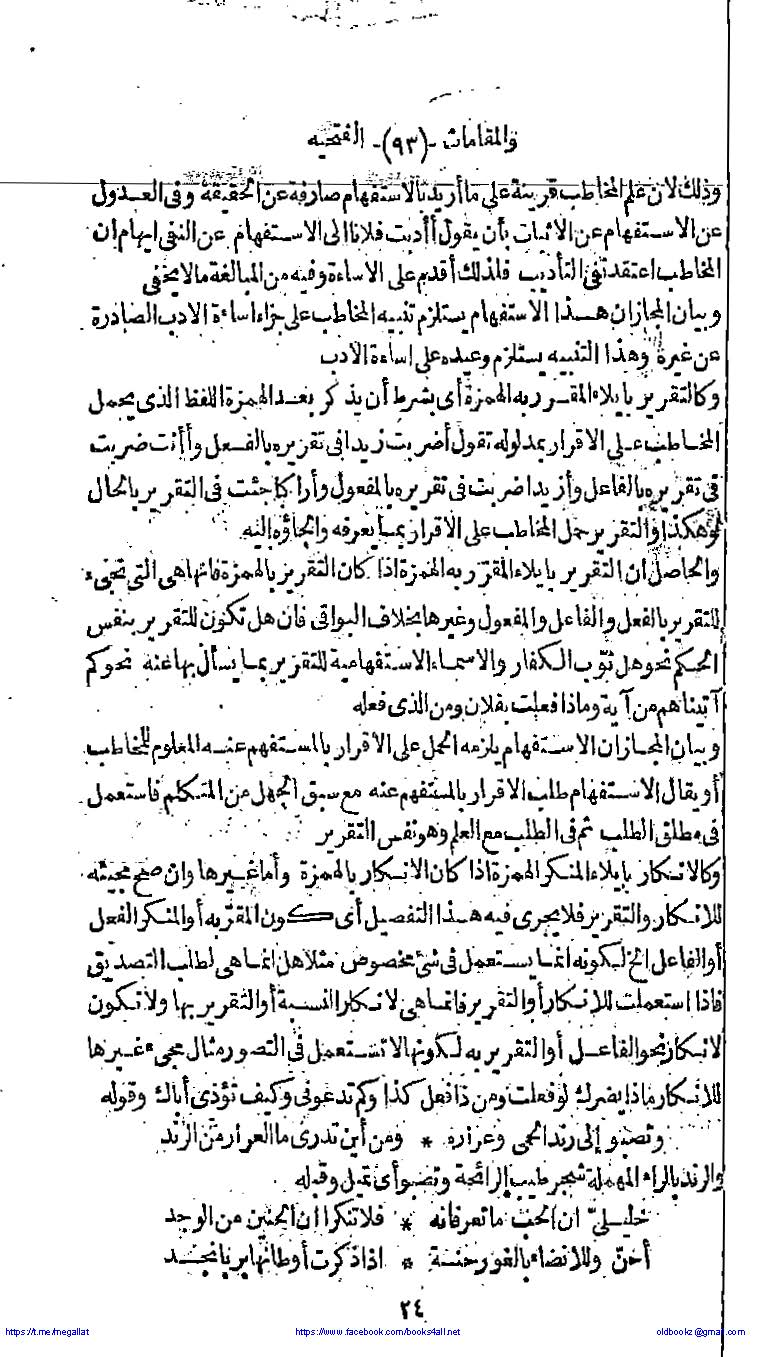 والمقامات -(٩٣)- الفتحيه
وذلك لان علم المخاطب قرينة على ما أريد بالاستفهام صارفة عن الحقيقة وفى العدول
عن الاستفهام عن الاثبات بأن يقول أأدبت فلانا الى الاستفهام عن النفى ايهام ان
المخاطب اعتقد نفى التأديب فلذلك أقدم على الاساءة وفيه من المبالغة مالا يخفى
وبيان المجاز ان هذا الاستفهام يستلزم تنبيه المخاطب على جزاء اساءة الادب الصادرة
عن غيره وهذا التنبيه يستلزم وعيده على اساءة الادب
وكالتقرير بايلاء المقرر به الهمزة أى بشرط أن يذكر بعد الهمزة اللفظ الذى يحمل
المخاطب على الاقرار بمدلوله تقول أضربت زيدا فى تقريره بالفعل وأأنت ضربت
فى تقريره بالفاعل وأزيدا ضربت فى تقريره بالمفعول وأراكبا جئت فى التقرير بالحال
وهكذا والتقرير حمل المخاطب على الاقرار بما يعرفه والجاؤه اليه
والحاصل ان التقرير بايلاء المقرر به الهمزة اذا كان التقرير بالهمزة فانها هى التى تجىء
للتقرير بالفعل والفاعل والمفعول وغيرها بخلاف البواقى فان هل تكون للتقرير بنفس
الحكم نحو هل ثوّب الكفار والاسماء الاستفهامية للتقرير بما يسأل بها عنه نحو كم
آتيناهم من آية وماذا فعلت بفلان ومن الذى فعله
وبيان المجاز ان الاستفهام يلزمه الحمل على الاقرار بالمستفهم عنه المعلوم للمخاطب
أو يقال الاستفهام طلب الاقرار بالمستفهم عنه مع سبق الجهل من المتكلم فاستعمل
فى مطلق الطلب ثم فى الطلب مع العلم وهو نفس التقرير
وكالانكار بايلاء المنكر الهمزة اذا كان الانكار بالهمزة وأما غيرها وان صح مجيئه
للانكار والتقرير فلا يجرى فيه هذا التفصيل أى كون المقرّبه أو المنكر الفعل
أو الفاعل الخ لكونه انما يستعمل فى شئ مخصوص مثلا هل انما هى لطلب التصديق
فاذا استعملت للانكار أو التقرير فانما هى لانكار النسبة أو التقرير بها ولا تكون
لانكار نحو الفاعل أو التقرير به لكونها لا تستعمل فى التصور مثال مجىء غيرها
للانكار ماذا يضرك لو فعلت ومن ذا فعل كذا وكم تدعونى وكيف تؤذى أباك وقوله
وتصبو إلى رند الحمى وعراره * ومن أين تدرى ما العرار من الرند
والرند بالراء المهملة شجر طيب الرائحة وتصبو أى تميل وقبله
خليلىّ ان الحب ما تعرفانه * فلا تنكرا ان الحنين من الوجد
أحنّ وللانضاء بالغور حنة * اذا ذكرت أوطانها بربا نجد
٢٤
https://t.me/megallat
https://www.facebook.com/books4all.net
oldbookz@gmail.com